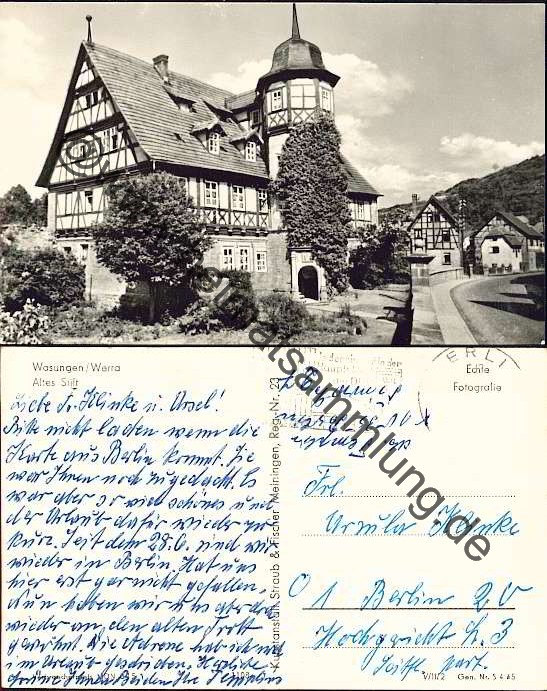 Wasungen/Werra
Altes Stift
Liebe Fr. Klinke u. Ursel!
Bitte nicht lachen wenn die
Karte aus Berlin kommt. Sie
war Ihnen noch zugedacht. Es
war aber so viel schönes und
der Urlaub dafür wieder zu
kurz. Seit dem 28.6. sind wir
wieder in Berlin. Hat uns
hier erst gar nicht gefallen,
Nun haben wir uns aber
wieder an den alten Trott
gewöhnt. Die Adresse hab ich noch
im Urlaub geschrieben. Herzliche
Grüße Ihnen Beiden Ihre
Kunstanstalt Straub & Fischer Meiningen, Reg.-Nr. 23
ERLI
Echte
Fotografie
Frl.
Ursula Klinke
1 Berlin 20
Hochgericht Str. 3
Seitfl. part.
V/11/2 Gen. Nr. S 4/65
©
materialsammlung.de